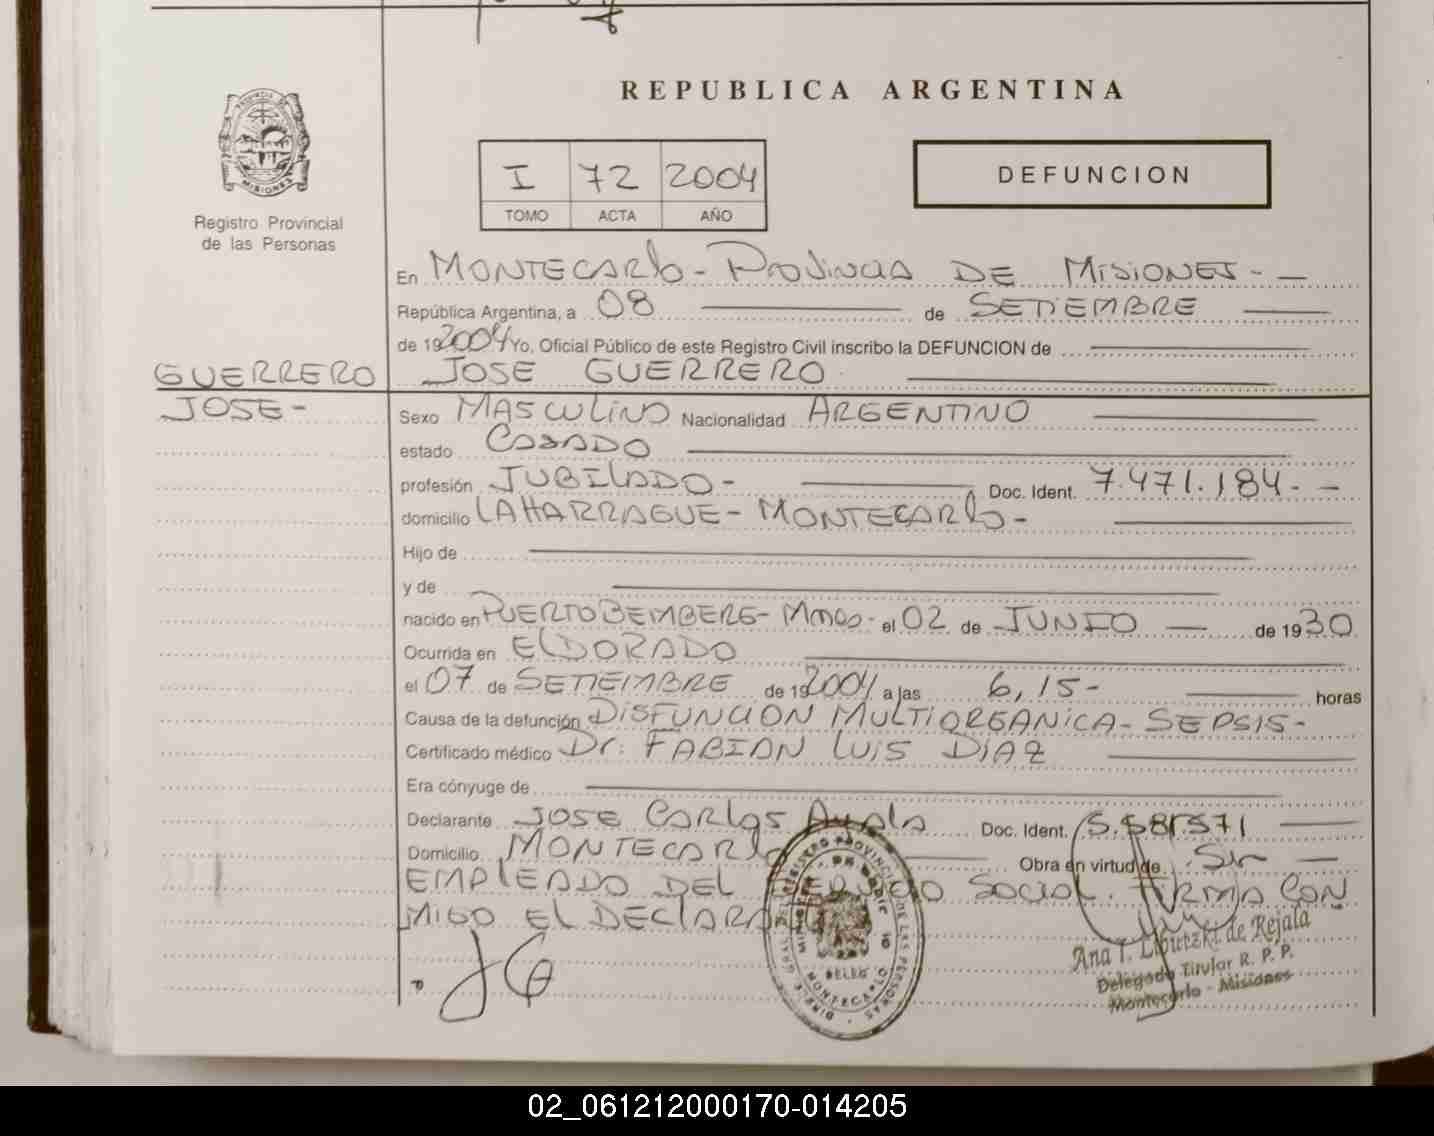 REPUBLICA ARGENTINA
PROVINCIA DE
MISIONES
Registro Provincial
de las Personas
I 72 2004
TOMO ACTA AÑO
DEFUNCION
En MONTECARlo - PROVINCIA DE MISIONES - —
República Argentina, a 08 — de SETIEMBRE —
de 192004 Yo, Oficial Público de este Registro Civil inscribo la DEFUNCION de —
GUERRERO JOSE GUERRERO —
JOSE -
Sexo MASCULINO Nacionalidad ARGENTINO —
estado CASADO —
profesión JUBILADO - — Doc. Ident. 7.471.184 - -
domicilio LAHARRAGUE - MONTECARlo - —
Hijo de —
y de —
nacido en PUERTO BEMBERG - Mnes - el 02 de JUNIO — de 1930
Ocurrida en ELDORADO —
el 07 de SETIEMBRE de 192004 a las 6,15 - — horas
Causa de la defunción DISFUNCION MULTIORGANICA - SEPSIS -
Certificado médico Dr. FABIAN LUIS DIAZ —
Era cónyuge de —
Declarante JOSE CARlos Ayala Doc. Ident. —
Domicilio MONTECARlo — Obra en virtud de Sr —
EMPLEADO DEL SOCIAL. FIRMA CON
MIGO EL DECLARANTE
Ana I. de Rejala
Delegada Titular R. P. P.
Montecarlo - Misiones
MONTECARLO
02_061212000170-014205